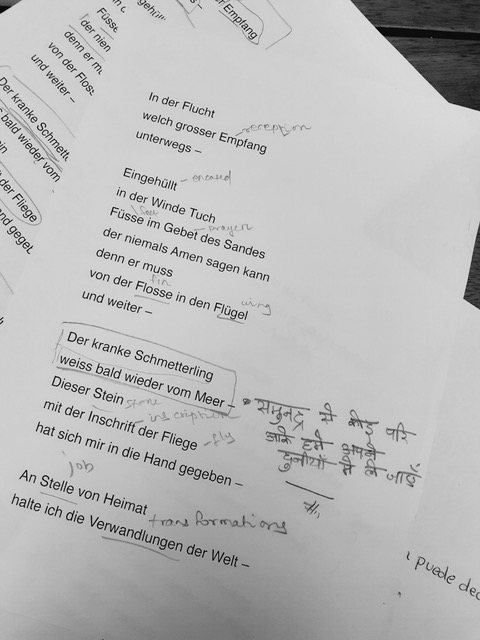 Empfang
Füsse
der nien
denn er m
von der Flos
und weiter –
Der kranke Schmette
bald wieder vom
der Fliege
and geget
In der Flucht
welch grosser Empfang – reception
unterwegs –
Eingehüllt – encased
in der Winde Tuch
feet
Füsse im Gebet des Sandes – prayer
der niemals Amen sagen kann
denn er muss
fin
von der Flosse in den Flügel wing
und weiter –
Der kranke Schmetterling
weiss bald wieder vom Meer –
समुनद्र से कोइ परि
आके हमे अपनी
दुनीयाँ मे ले जाऐं
Dieser Stein stone
mit der Inschrift der Fliege – fly
inscription
hat sich mir in die Hand gegeben –
job
An Stelle von Heimat
halte ich die Verwandlungen der Welt –
transformations
puede dec